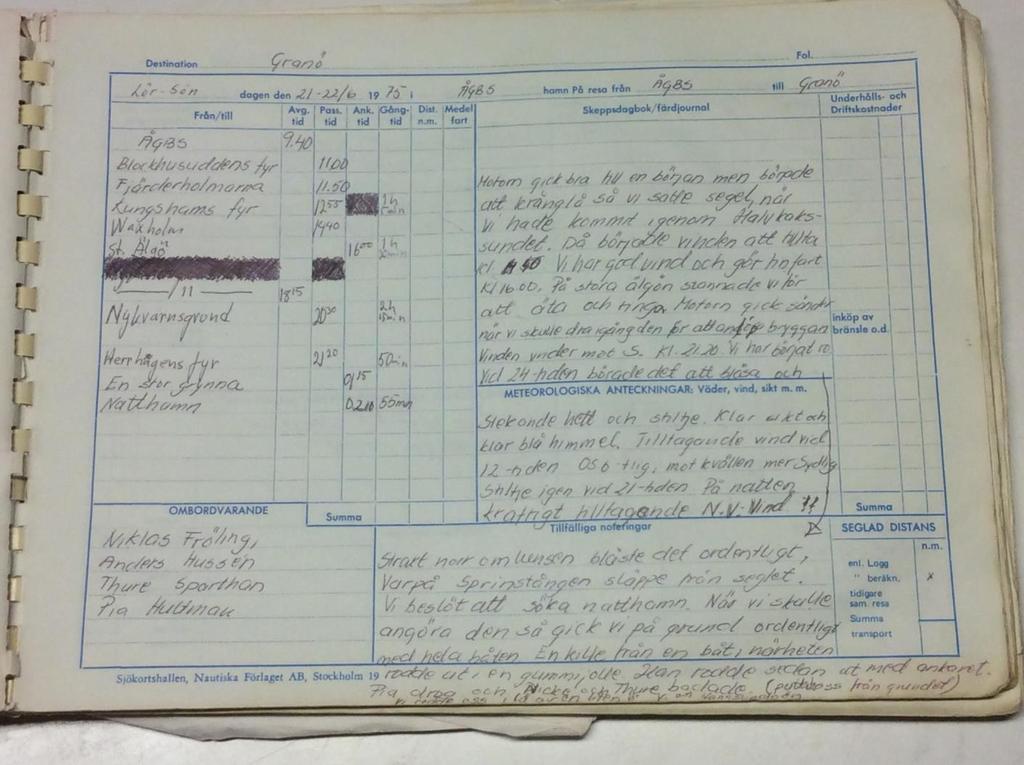 Destination Granö Fol.
Lör-Sön dagen den 21-22/6 1975 i ÅGBS hamn På resa från ÅGBS till Granö
Från/till Avg. tid Pass. tid Ank. tid Gång- tid Dist. n.m. Medel fart
ÅGBS 9.40
Blockhusuddens fyr 11.00
Fjärderholmarna 11.50
Kungshams fyr 12 55 1h
Waxholm 1440
St. Älgö 16 00 1h
— 11 — 18 15
Nykvarnsgrund 20 30 2h 15min
Herrhagens fyr 21 20 50min
En stor grynna 01 15
Natthamn 02.10 55min
Summa
OMBORDVARANDE
Niklas Fröling,
Anders Hussén
Thure Sparthan
Pia Hultmak
Skeppsdagbok/färdjournal
Motorn gick bra till en början men började
att krångla så vi satte segel, när
vi hade kommit igenom Halvkaks-
sundet. Då började vinden att tillta
kl Vi har god vind och gör bra fart
Kl 16.00. På stora älgön stannade vi för
att äta och ringa. Motorn gick sönder
när vi skulle dra igång den för att bryggan
Vinden vrider mot S. Kl. 21.20 Vi har börjat ro
Vid 24-tiden börade det att blåsa och
METEOROLOGISKA ANTECKNINGAR: Väder, vind, sikt m. m.
Stekande hett och stiltje. Klar sikt och
klar blå himmel. Tilltagande vind vid
12-tiden OSO-tlig, mot kvällen mer Sydlig
Stiltje igen vid 21-tiden På natten
kraftigt tilltagande N.V-Vind !!
Underhålls- och Driftskostnader
inköp av bränsle o.d.
Summa
Tillfälliga noteringar
Strax norr om kunsen blåste det ordentligt,
Varpå Sprinstången släppe från seglet.
Vi beslöt att söka natthamn. När vi skulle
angöra den så gick vi på grund ordentligt
med hela båten. En kille från en båt i närheten
rodde ut i en gummijolle. Han rodde sedan ut med ankaret.
Pia drog och Nicke och Thure bäclade. (puttboss från grundet)
SEGLAD DISTANS
n.m.
enl. Logg
" beräkn. x
tidigare sam. resa
Summa transport
Sjökortshallen, Nautiska Förlaget AB, Stockholm 19